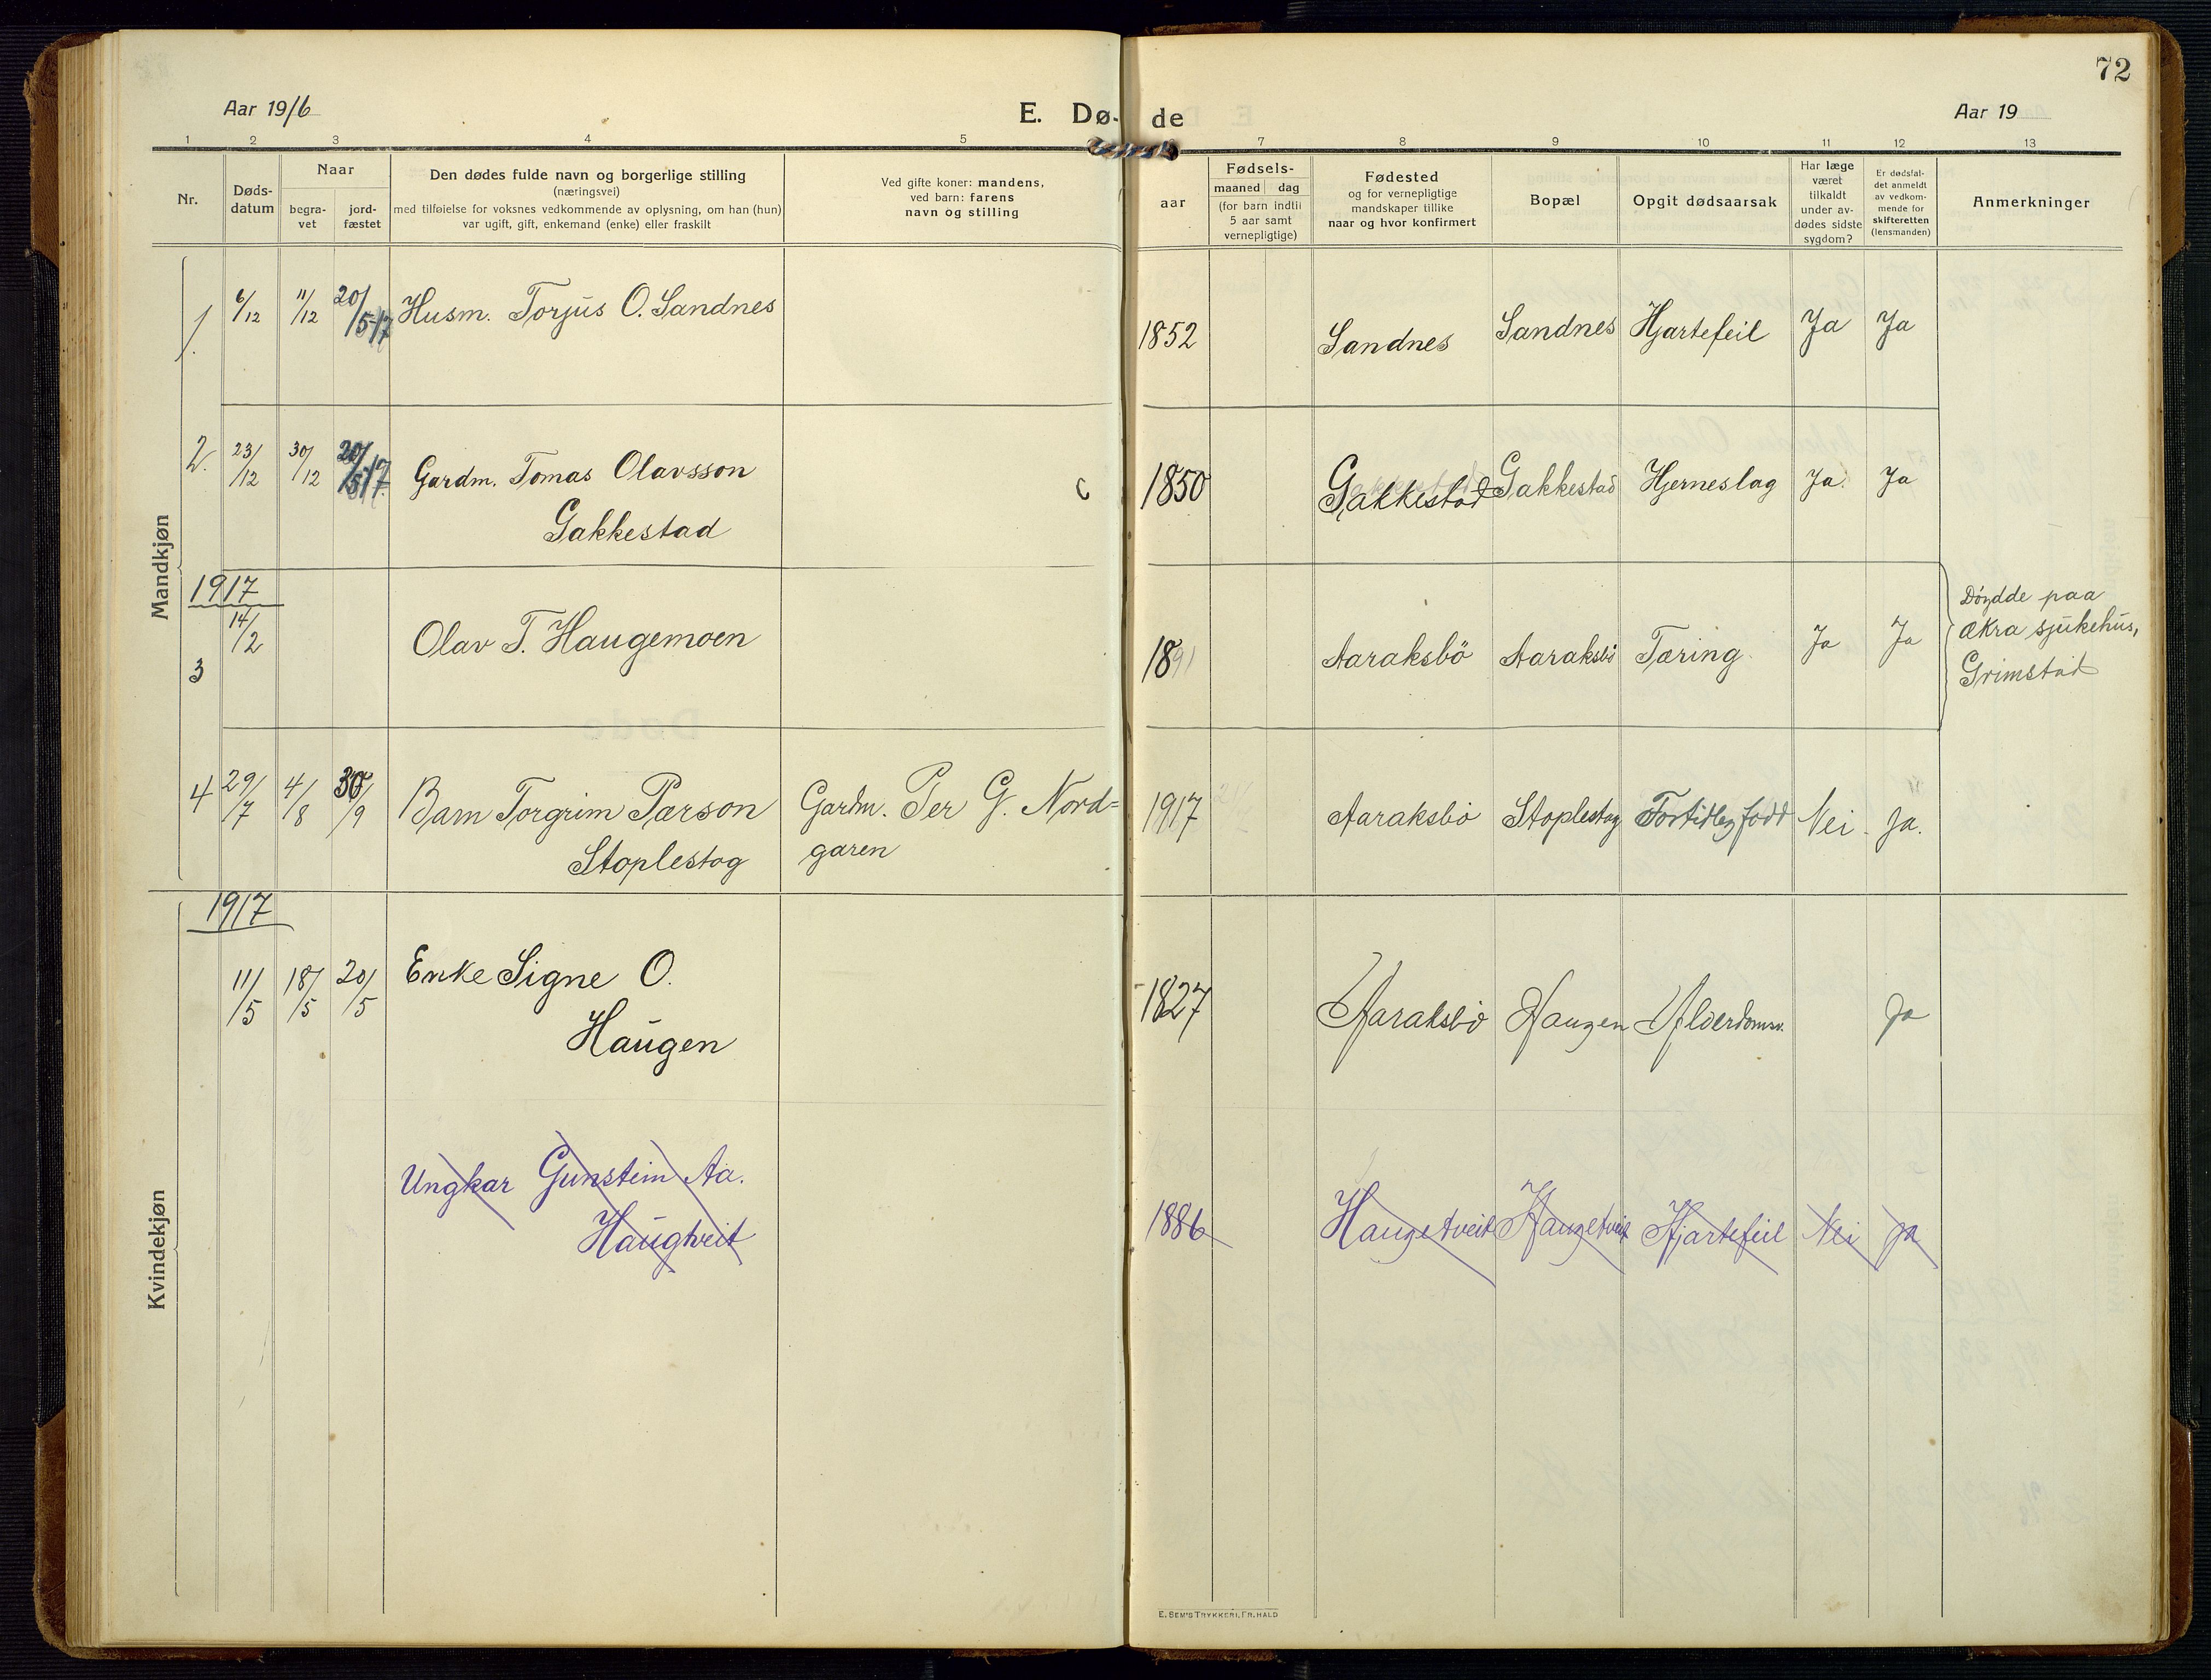 72
Aar 1916
E. Dø-
de
Aar 19
1 2 3 4 5 7 8 9 10 11 12 13
Nr.
Døds-
datum
Naar
begra-
vet
jord-
fæstet
Den dødes fulde navn og borgerlige stilling
(næringsvei)
med tilføielse for voksnes vedkommende av oplysning, om han (hun)
var ugift, gift, enkemand (enke) eller fraskilt
Ved gifte koner: mandens,
ved barn: farens
navn og stilling
Fødsels-
aar
maaned dag
(for barn indtil
5 aar samt
vernepligtige)
Fødested
og for vernepligtige
mandskaper tillike
naar og hvor konfirmert
Bopæl
Opgit dødsaarsak
Har læge
været
tilkaldt
under av-
dødes sidste
sygdom?
Er dødsfal-
det anmeldt
av vedkom-
mende for
skifteretten
(lensmanden)
Anmerkninger
Mandkjøn
1. 6/12 11/12 20/5-17 Husm. Torjus O. Sandnes 1852 Sandnes Sandnes Hjartefeil Ja Ja
2. 23/12 30/12 20/5-17 Gardm. Tomas Olavsson 1850 Gakkestad Gakkestad Hjerneslag Ja. Ja
Gakkestad
1917
3 14/2 Olav T. Haugemoen 1891 Aaraksbö Aaraksbö Tæring Ja Ja
Döydde paa
Ækra sjukehus,
Grimstad
4 29/7 4/8 30/9 Barn Torgrim Pærson Gardm. Per G. Nord= 1917 Aaraksbö Stoplestog Fortidleg fødd Nei Ja.
Stoplestog garen
Kvindekjøn
1917
11/5 18/5 20/5 Enke Signe O. 1827 Aaraksbö Haugen Alderdomsv. Ja
Haugen
Ungkar Gunstein Aa. 1886 Haugetveit Haugetveit Hjartefeil Nei Ja
Haugtveit
E. SEM'S TRYKKERI, FR. HALD